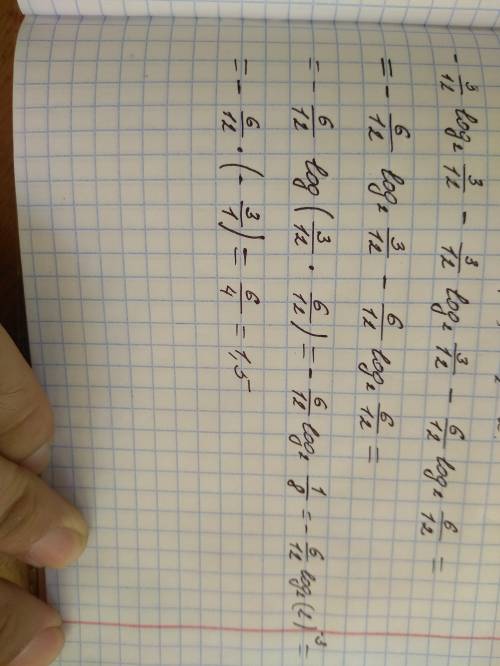 - 3/12 log₂ 3/12 - 3/12 log₂ 3/12 - 6/12 log₂ 6/12 =
= - 6/12 log₂ 3/12 - 6/12 log₂ 6/12 =
= - 6/12 log (3/12 · 6/12) = - 6/12 log₂ 1/8 = - 6/12 log₂ (2)⁻³ =
= - 6/12 · (- 3/1) = 6/4 = 1,5